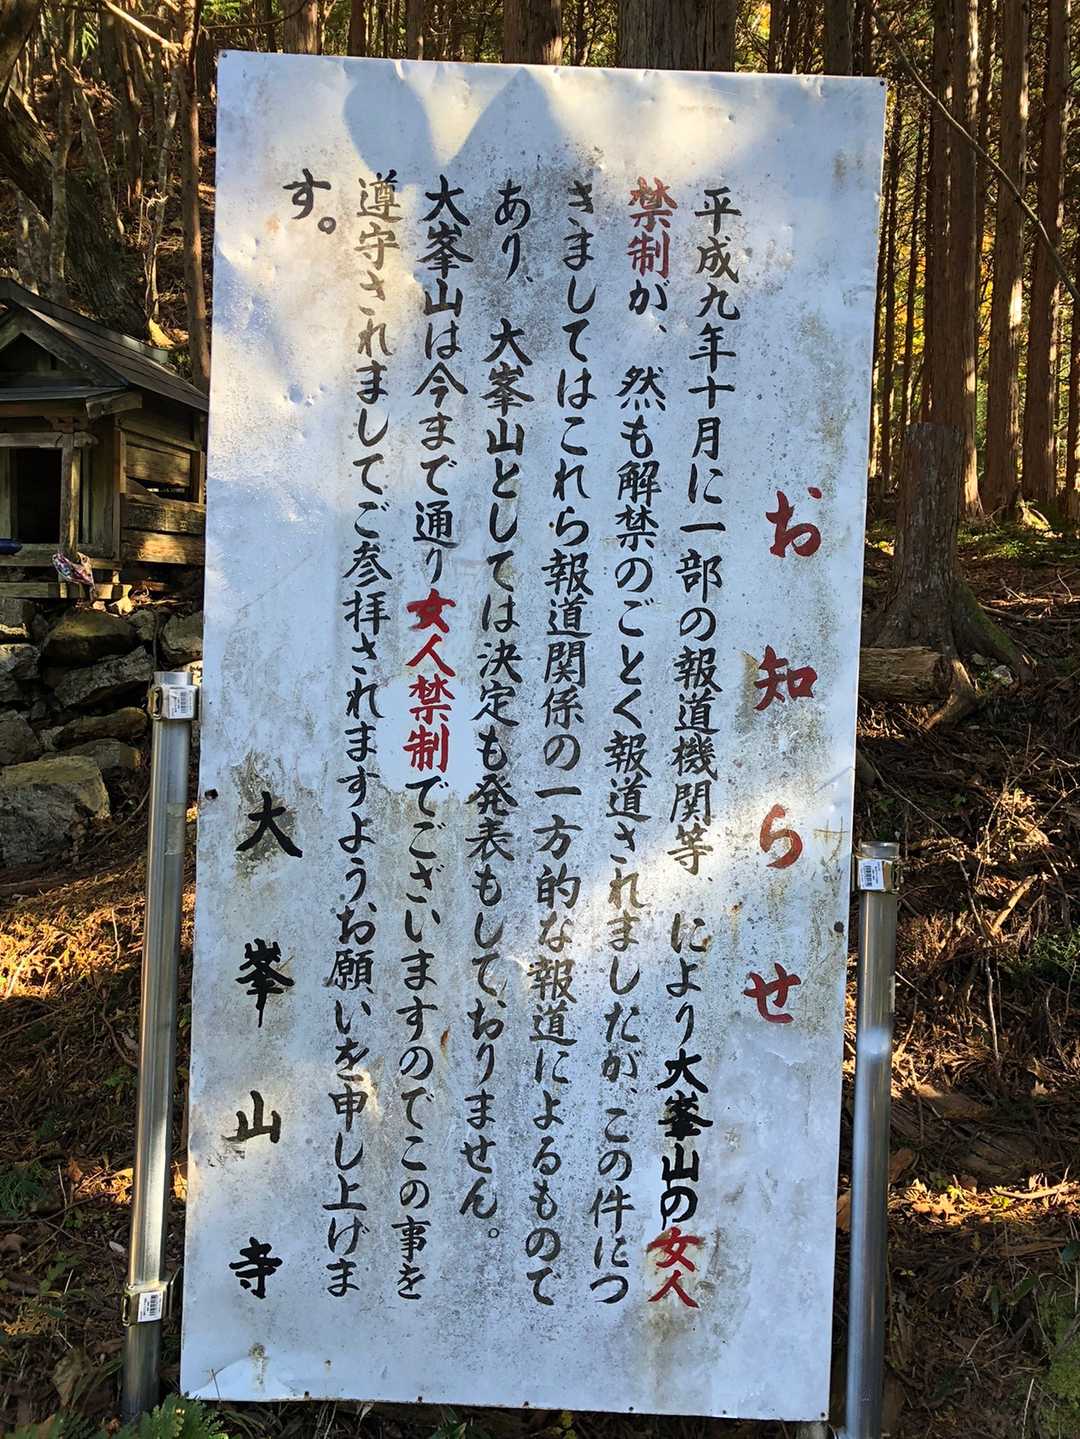 お知らせ
平成九年十月に一部の報道機関等、により大峯山の女人
禁制が、然も解禁のごとく報道されましたが、この件につ
きましてはこれら報道関係の一方的な報道によるもので
あり、大峯山としては決定も発表もしておりません。
大峯山は今まで通り女人禁制でございますのでこの事を
遵守されましてご参拝されますよう、お願いを申し上げま
す。
大峯山寺